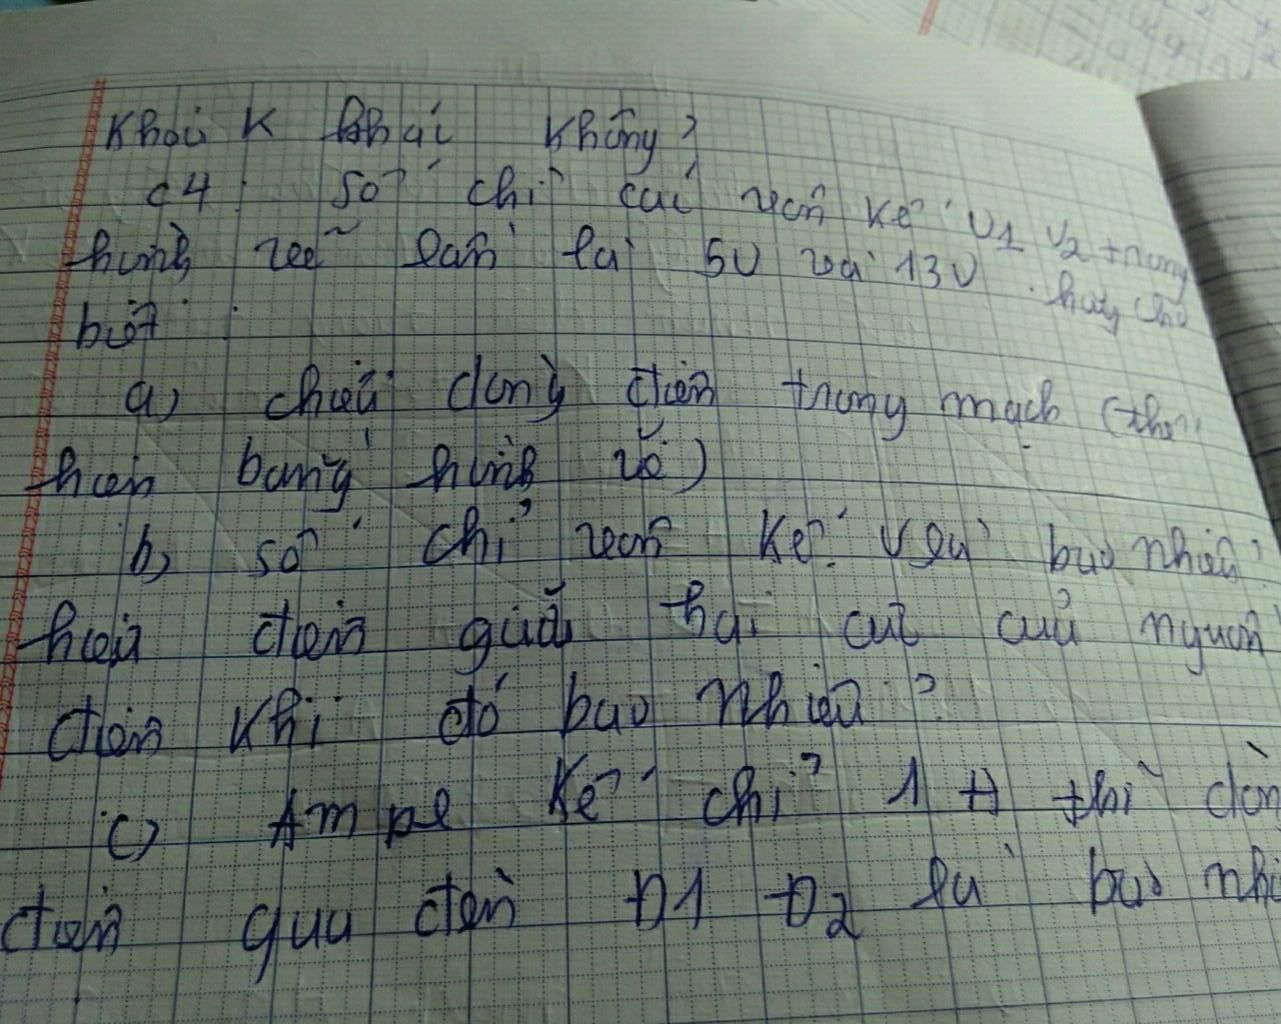 Khoá K phải không?
C4: Số chỉ của vôn kế V1 V2 trong
hình vẽ lần là 5V và 13V. hãy cho
biết:
a, chiều dòng điện trong mạch (thể
hiện bằng hình vẽ)
b, số chỉ vôn kế V là bao nhiêu?
hiệu điện giữa hai cực của nguồn
điện khi đó bao nhiêu?
c) Ampe kế chỉ 1A thì dòn
điện qua đèn Đ1 Đ2 là bao nhi